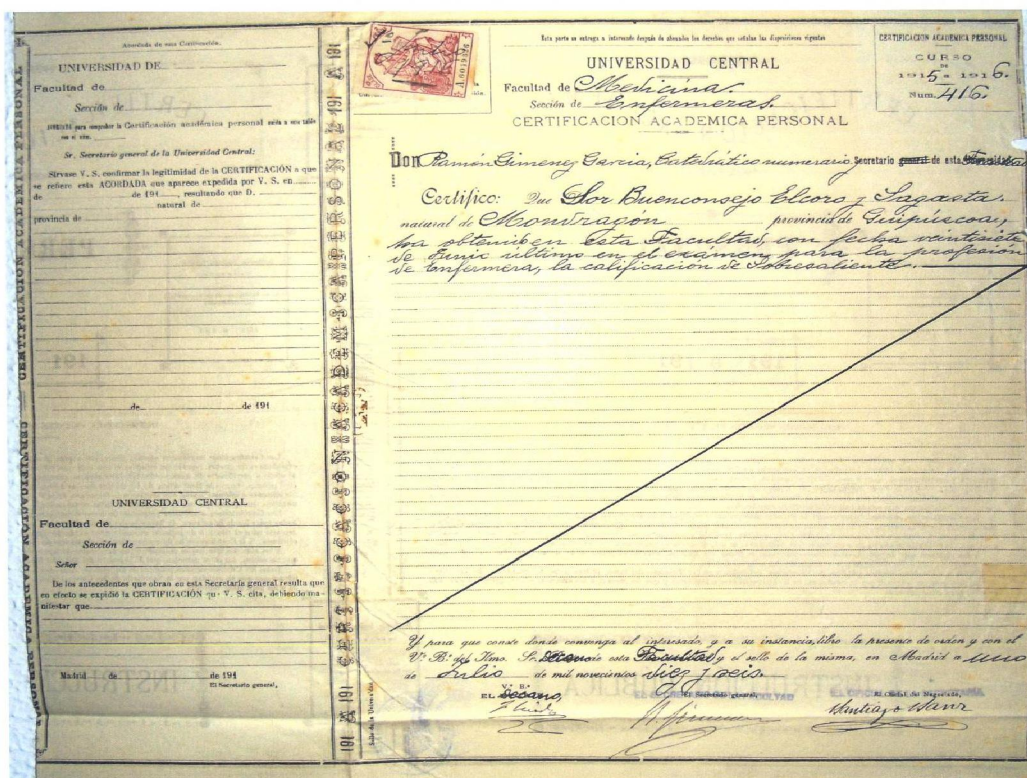 CERTIFICACION ACADEMICA PERSONAL
Acordada de esta Certificación.
UNIVERSIDAD DE
Facultad de
Sección de
para comprobar la Certificación académica personal unida a este talón
Sr. Secretario general de la Universidad Central:
Sírvase V. S. confirmar la legitimidad de la CERTIFICACIÓN a que
se refiere esta ACORDADA que aparece expedida por V. S. en
de de 191 , resultando que D.
natural de
provincia de
de de 191
UNIVERSIDAD CENTRAL
Facultad de
Sección de
Señor
De los antecedentes que obran en esta Secretaría general resulta que
en efecto se expidió la CERTIFICACIÓN que V. S. cita, debiendo ma-
nifestar que
Madrid de de 191
El Secretario general,
191
CERTIFICACION ACADEMICA PERSONAL
191
Esta parte se entrega a interesado después de abonados los derechos que señalan las disposiciones vigentes
UNIVERSIDAD CENTRAL
Facultad de Medicina.
Sección de Enfermeras.
CERTIFICACION ACADEMICA PERSONAL
CERTIFICACION ACADEMICA PERSONAL
CURSO
DE
1915 a 1916.
Num. 416.
Don Ramón Gimenez García, Catedrático numerario, Secretario general de esta
Certifico: Que Sor Buenconsejo Elcoro y Sagasta.
natural de Mondragón provincia de Guipúscoa,
ha obteniben esta Facultad, con fecha veintisiete
de Junio último en el exámen para la profesión
de Enfermera, la calificación de Sobresaliente.
Y para que conste donde convenga al interesado, y a su instancia, libro la presente de orden y con el
V.º B.º del Ilmo. Sr. Decano de esta Facultad y el sello de la misma, en Madrid a uno
de Julio de mil novecientos diez y seis.
V.º B.º
EL Decano,
El Secretario general,
El Oficial del Negociado,
Santiago Sanz